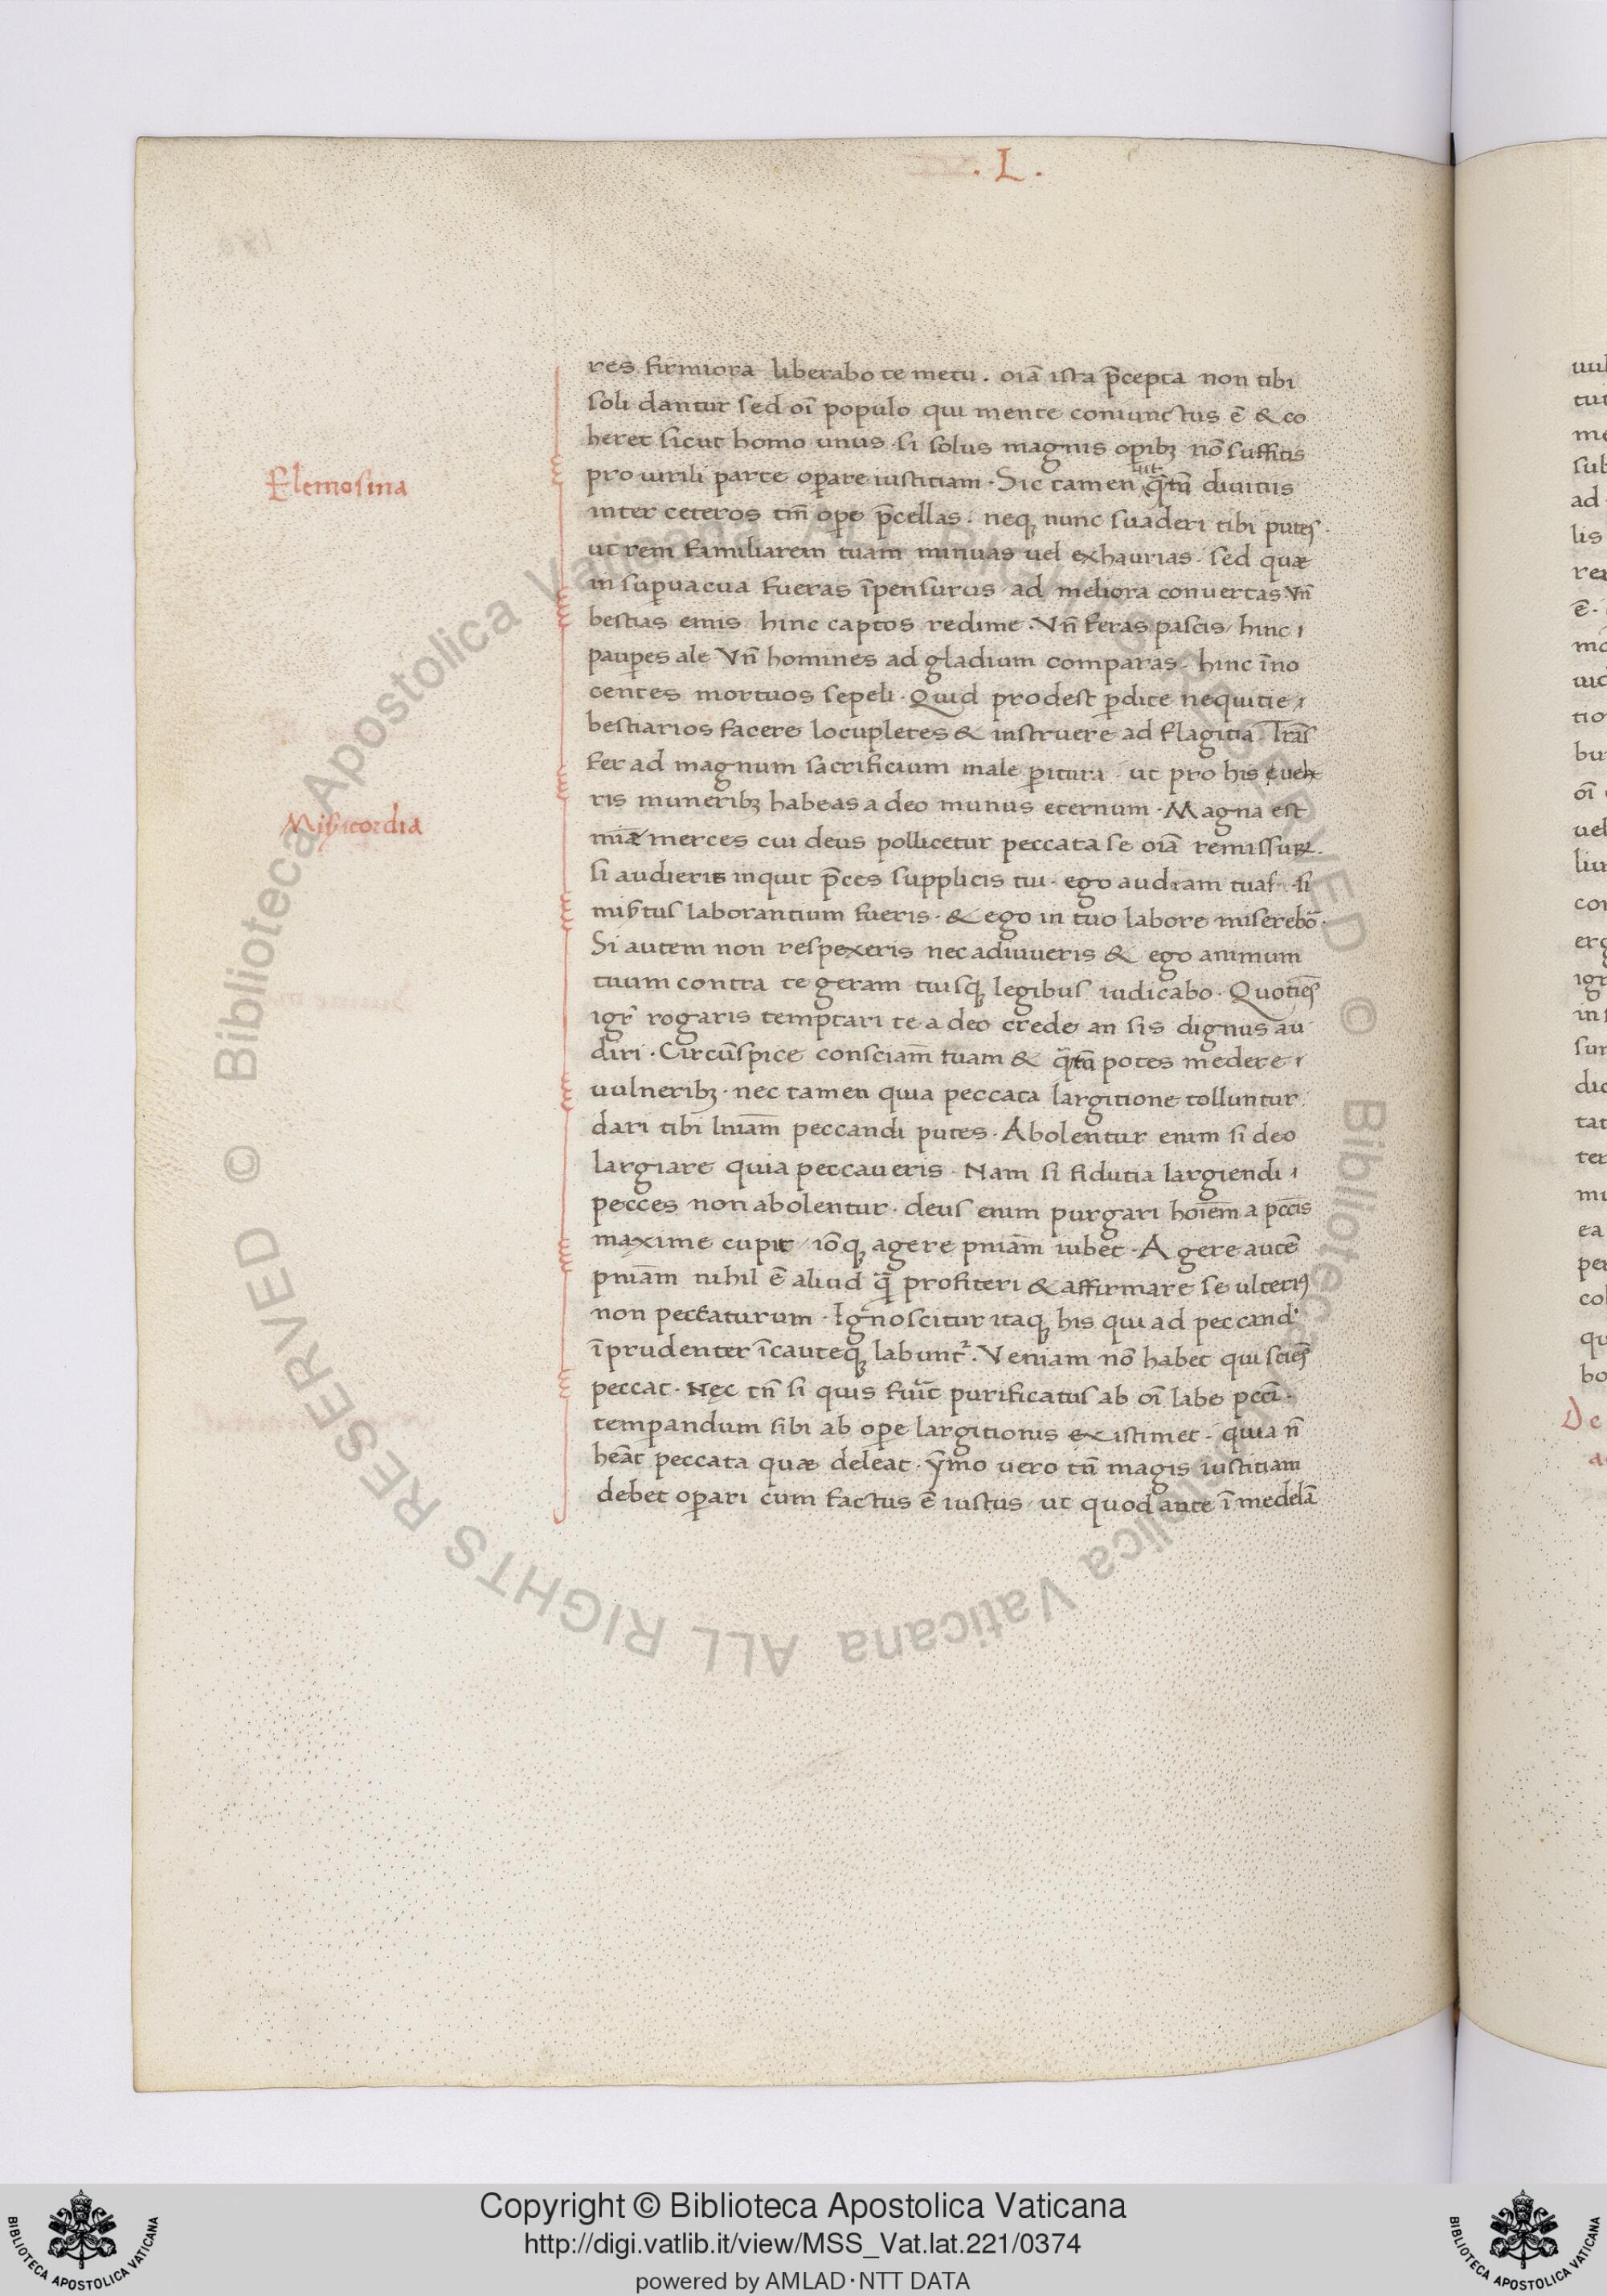 . L .
res firmiora liberabo te metu . oīa ista p̄cepta non tibi
soli dantur sed oī populo qui mente coniunctus ē & co
heret sicut homo unus . si solus magnis opibꝫ nō suffitis
Elemosina
pro uirili parte opare iustitiam . Sic tamen ut q̄tū diuitiis
inter ceteros tm̄ ope p̄cellas . neqꝫ nunc suaderi tibi putes .
ut rem familiarem tuam minuas uel exhaurias . sed quæ
in supuacua fueras īpensurus ad meliora conuertas Vn̄
bestias emis hinc captos redime . Vn̄ feras pascis / hinc
paupes ale Vn̄ homines ad gladium comparas . hinc īno
centes mortuos sepeli . Quid prodest pdite nequitie
bestiarios facere locupletes & instruere ad flagitia . Trās
fer ad magnum sacrificium male pitura . ut pro his ę ueh
ris muneribꝫ habeas a deo munus eternum . Magna est
Misicordia
miæ merces cui deus pollicetur peccata se oīa remissuꝝ .
si audieris inquit p̄ces supplicis tui . ego audiam tuas . si
misͥtus laborantium fueris . & ego in tuo labore miserebō .
Si autem non respexeris nec adiuueris & ego animum
tuum contra te geram tuisqꝫ legibus iudicabo . Quotiēs
igr̄ rogaris temptari te a deo crede an sis dignus au
diri . Circūspice consciam̄ tuam & q̄tū potes medere
uulneribꝫ . nec tamen quia peccata largitione tolluntur
dari tibi lniam̄ peccandi putes . Abolentur enim si deo
largiare quia peccaueris . Nam si fidutia largiendi
pecces non abolentur . deus enim purgari hoīem a pcc̄is
maxime cupit / iōqꝫ agere pniām iubet . Agere autē
pniām nihil ē aliud q̄ꝫ profiteri & affirmare se ulteriꝰ
non peccaturum . Ignoscitur itaqꝫ his qui ad peccand
īprudenter īcauteqꝫ labunt᷑ . Veniam nō habet qui sciēs
peccat . Nęc tn̄ si quis fuīt purificatus ab oī labe pcc̄i .
tempandum sibi ab ope largitionis existimet . quia n̄
heāt peccata quæ deleat . ȳmo uero tn̄ magis iustitiam
debet opari cum factus ē iustus / ut quod ante ī medelā
Copyright © Biblioteca Apostolica Vaticana
http://digi.vatlib.it/view/MSS_Vat.lat.221/0374
powered by AMLAD·NTT DATA
BIBLIOTECA APOSTOLICA VATICANA
BIBLIOTECA APOSTOLICA VATICANA
© Biblioteca Apostolica Vaticana ALL RIGHTS RESERVED © Biblioteca Apostolica Vaticana ALL RIGHTS RESERVED